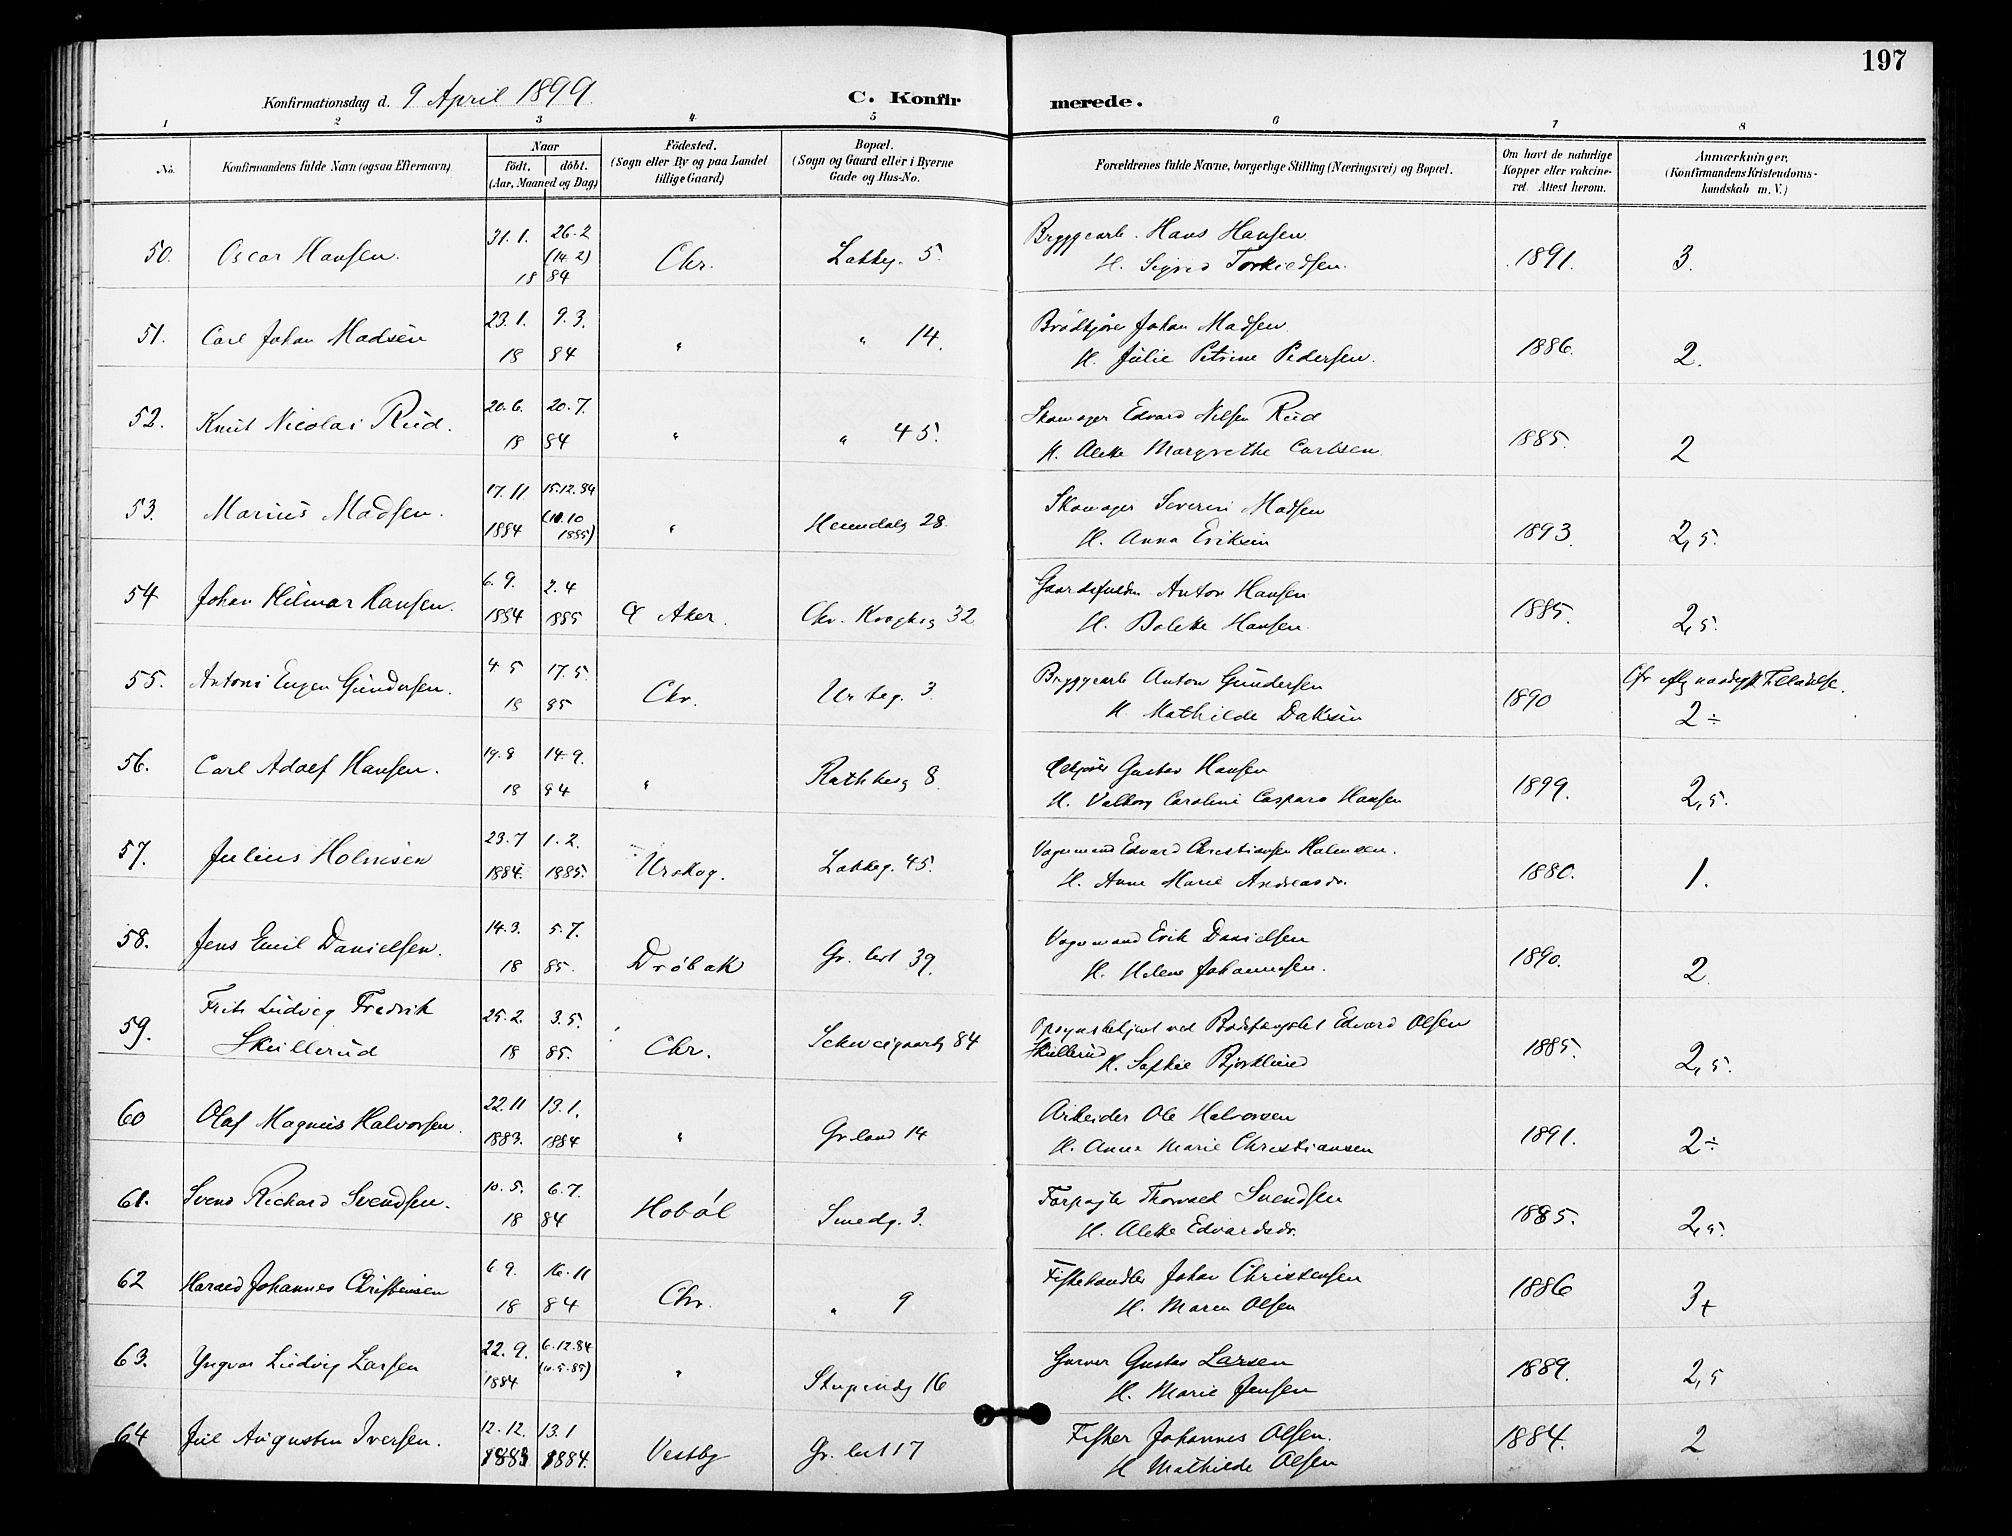 197
Konfirmationsdag d. 9 April 1899
C. Konfir merede.
1 2 3 4 5 6 7 8
No.
Konfirmandens fulde Navn (ogsaa Efternavn)
Naar
födt. döbt.
(Aar, Maaned og Dag)
Födested.
(Sogn eller By og paa Landet
tillige Gaard)
Bopæl.
(Sogn og Gaard eller i Byerne
Gade og Hus-No.
Forældrenes fulde Navne, borgerlige Stilling (Næringsvei) og Bopæl.
Om havt de naturlige
Kopper eller vakcine-
ret. Attest herom.
Anmærkninger,
(Konfirmandens Kristendoms-
kundskab m. V.)
50. Oscar Hansen. 31.1. 26.2 (14.2) 18 84 Chr. Lakkeg. 5. Bryggearb. Hans Hansen
H. Sigrid Torkildsen. 1891. 3.
51. Carl Johan Madsen 23.1. 9.3. 18 84 " " 14. Brödkjörer Johan Madsen
H. Julie Petrine Pedersen. 1886. 2.
52. Knut Nicolai Rud. 20.6. 20.7. 18 84 " " 45. Skomager Edvard Nilsen Rud
H. Alette Margrethe Carlsen 1885. 2
53. Marius Madsen. 17.11 1884 15.12.84 (10.10 1885) " Heimdalsg 28. Skomager Severin Madsen
H. Anna Eriksen 1893. 2,5.
54 Johan Hilmar Hansen. 6.9. 1884 2.4 1885 Aker. Chr. Krogheg 32 Anton Hansen
H. Bolette Hansen. 1885. 2,5.
55. Antoni Eugen Gundersen. 4 5 17.5. 18 85 Chr. Urteg. 3. Bryggearb Anton Gundersen
H. Mathilde 1890 Cfr Tilladelse.
2÷
56. Carl Adolf Hansen. 19.8 14.9. 18 84 " Rathkesg 8. Gustav Hansen
H. Valborg Caroline Caspara Hansen 1899. 2,5.
57. Julius Holmsen 23.7 1884. 1.2. 1885. Urskog. Lakkeg. 45. Vognmand Edvard Christiansen Holmsen.
H. Anne Marie Andreasdr. 1880. 1.
58. Jens Emil Danielsen. 14.3. 5.7. 18 85. Dröbak Gr. leret 39. Vognmand Erik Danielsen
H. Helene Johannesen. 1890. 2
59. Frits Ludvig Fredrik
Skullerud 25.2. 3.5. 18 85. Chr. Schweigaardsg 84 Opsynsbetjent ved Bodsfængslet Edvard Olsen
Skullerud H. Sofhie Björklund 1885. 2,5.
60 Olaf Magnus Halvorsen. 22.11 1883. 13.1. 1884 " Grönland 14 Arbeider Ole Halvorsen
H. Anna Marie Christiansen 1891. 2÷
61. Svend Richard Svendsen. 10.5. 6.7. 18 84 Haböl Smedg. 3. Thorvald Svendsen
H. Alette Edvardsdr. 1885. 2,5.
62 Harald Johannes Christensen 6 9. 16.11 18 84 Chr. " 9 Fiskehandler Johan Christensen
H. Maren Olsen 1886 3+
63. Yngvar Ludvig Larsen 22.9. 1884 6.12.84 (10.5.85) " Stupindsg 16 Garver Gustav Larsen
H. Marie Jensen 1889. 2,5
64 Juul Augustin Iversen. 12.12. 1883 13.1 1884. Vestby Gr. leret 17 Fisker Johannes Olsen.
H Mathilde Olsen 1884. 2